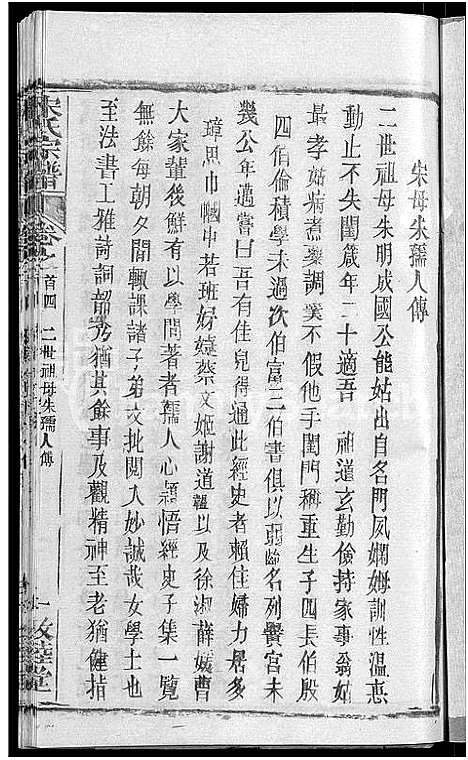 宋母朱孺人傳
二世祖母朱明成國公能姑出自名門夙嫻姆訓性温恭
動止不失閨箴年二十適吾 祖道玄勤儉持家事翁姑
最孝姑病煮藥調羹不假他手閨門稱重生子四長伯殷
四伯倫積學未遇次伯富三伯書俱以弱齡名列黌宮未
幾公年邁嘗曰吾有佳兒得通此經史者賴佳婦力居多
璋黑巾幗中若班婕蔡文姬謝道韞以及徐淑薛媛曹
大家輩後鮮有以學問著者孺人心穎悟經史子集一覽
無餘每朝夕間輒課諸子弟文批閱入妙誠哉女學士也
至法書工雅詩詞韶秀猶其餘事及觀精神至老猶健指
宋氏宗譜
卷之
首四 二世祖母朱孺人傳
一